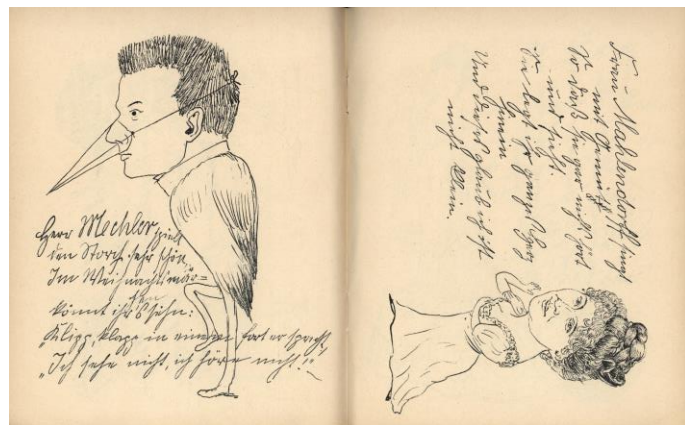 Herr Mechler spielt
den Storch sehr schön,
Im Weihnachtsmär-
chen
könnt ihr's sehn:
Klipp, klapp in einem fort er spricht
„Ich sehe nicht, ich höre nicht!“
Frau Mahlendorff singt
mit Gemüt
So daß sie gar nicht hört
und sieht.
Sie legt ihr ganzes Herz
hinein
Und dieses glaub ich ist
nicht klein.